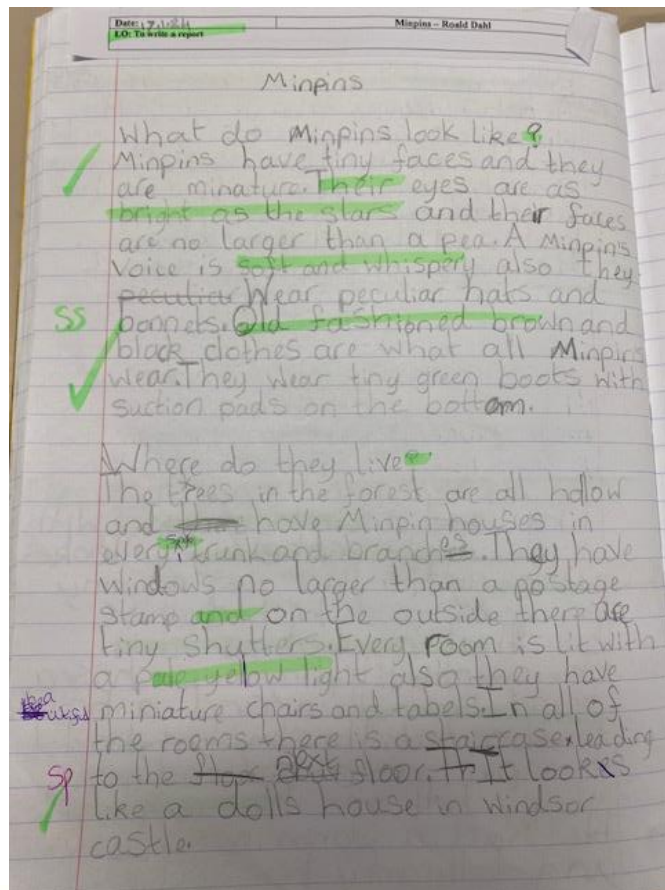 Date: 17.1.24 Minpins – Roald Dahl
LO: To write a report
Minpins
What do Minpins look like?
Minpins have tiny faces and they
are minature. Their eyes are as
bright as the stars and their faces
are no larger than a pea. A Minpins
voice is soft and whispery also they
peculiar Wear peculiar hats and
SS bonnets. Old fashioned brown and
black clothes are what all Minpins
wear. They wear tiny green boots with
suction pads on the bottom.
Where do they live?
The trees in the forest are all hollow
and have Minpin houses in
every trunk and branches. They have
windows no larger than a postage
stamp and on the outside there are
tiny shutters. Every room is lit with
a pale yellow light also they have
miniature chairs and tabels. In all of
the rooms there is a staircase leading
sp to the floor next floor. It It looks
like a dolls house in windsor
castle.